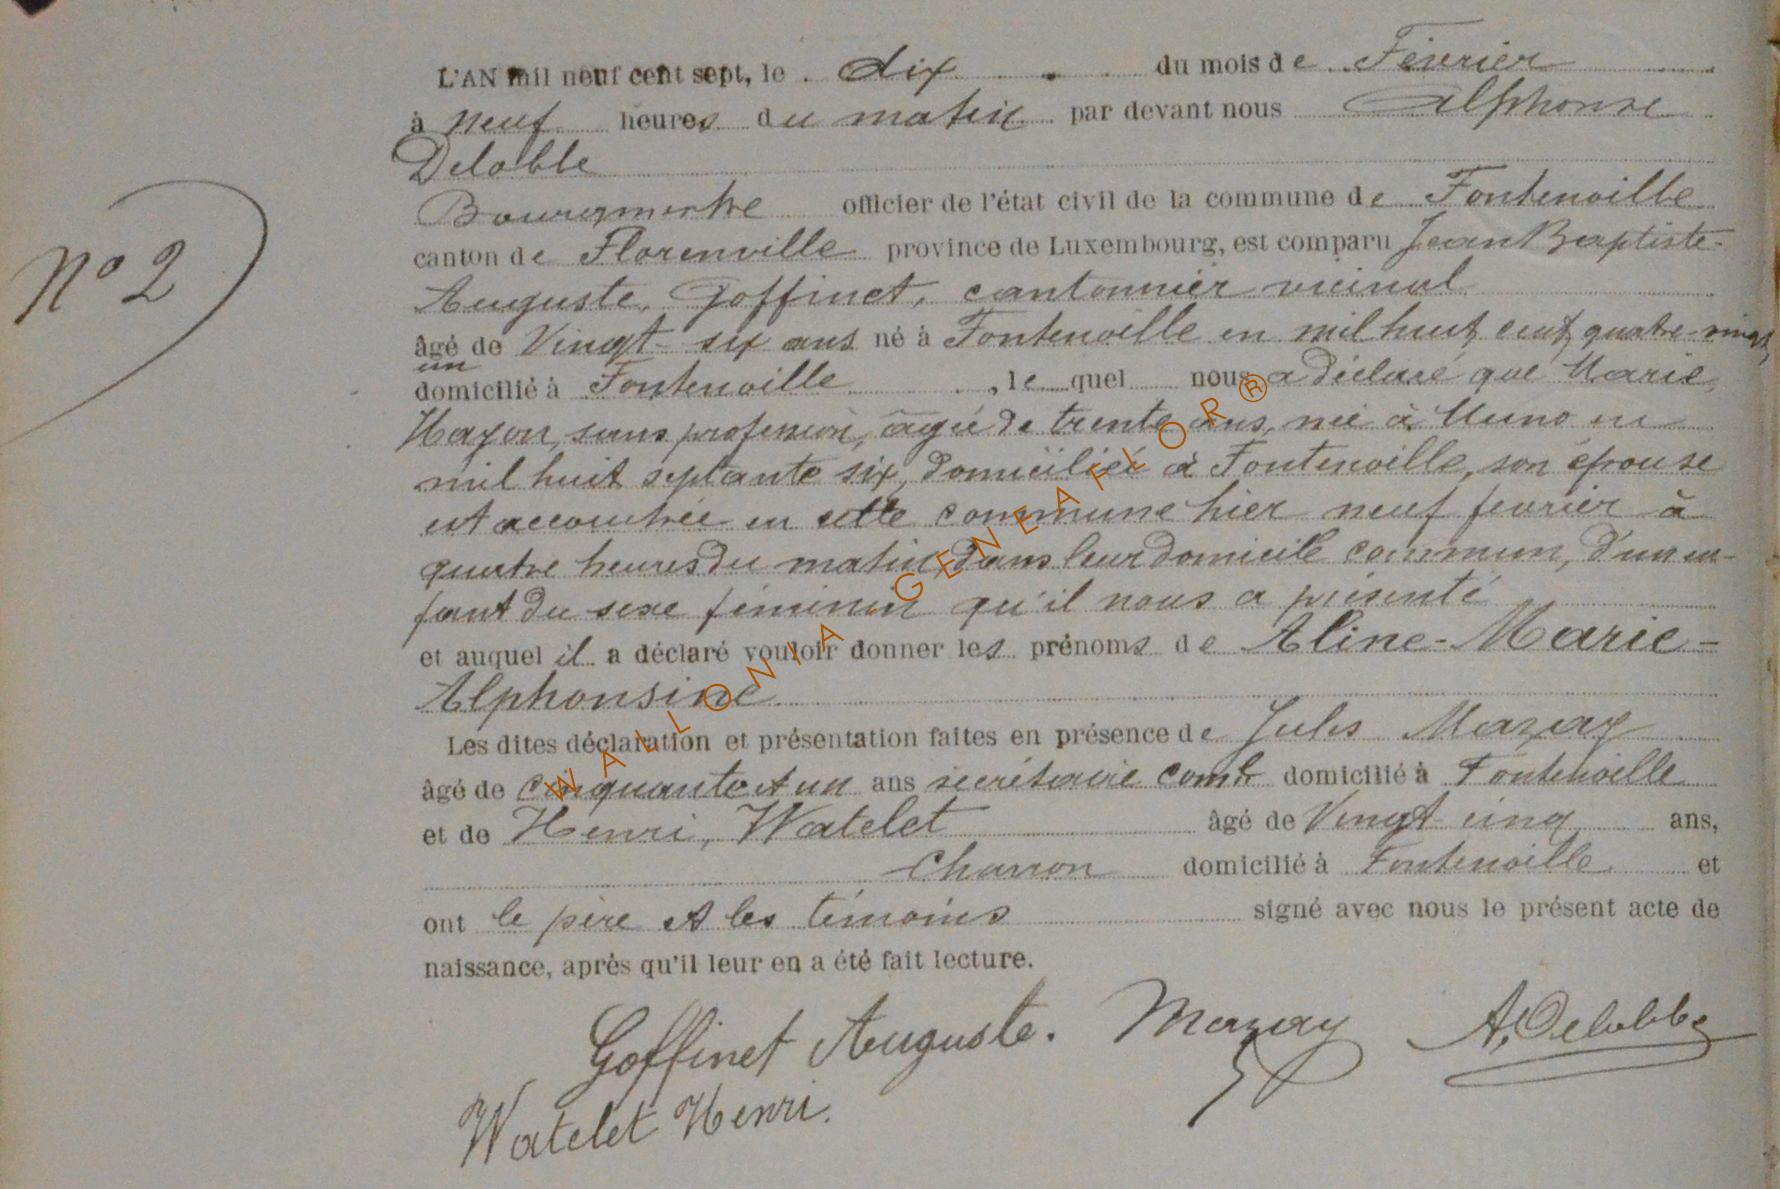 L'AN mil neuf cent sept, le dix du mois de Février
à neuf heures du matin par devant nous Alphonse
Delobbe
Bourgmestre officier de l'état civil de la commune de Fontenoille
canton de Florenville province de Luxembourg, est comparu Jean Baptiste-
Auguste, Goffinet, cantonnier vicinal
âgé de Vingt-six ans né à Fontenoille en mil huit cent quatre-vingt
un
domicilié à Fontenoille, lequel nous a déclaré que Marie,
Hazon, sans profession, âgée de trente ans, née à Muno en
mil huit septante six, domiciliée à Fontenoille, son épouse
est accouchée en cette commune hier neuf fevrier à
quatre heures du matin, dans leur domicile commun, d'un en-
fant du sexe féminin qu'il nous a présenté
et auquel il a déclaré vouloir donner les prénoms de Aline-Marie=
Alphonsine
Les dites déclaration et présentation faites en présence de Jules Mazay
âgé de cinquante et un ans secrétaire coml domicilié à Fontenoille
et de Henri, Watelet âgé de Vingt cinq ans,
Charron domicilié à Fontenoille et
ont le père et les témoins signé avec nous le présent acte de
naissance, après qu'il leur en a été fait lecture.
Goffinet Auguste. Mazay A, Delobbe
Watelet Henri.
No 2
WALLONIA GENEAFLOR®